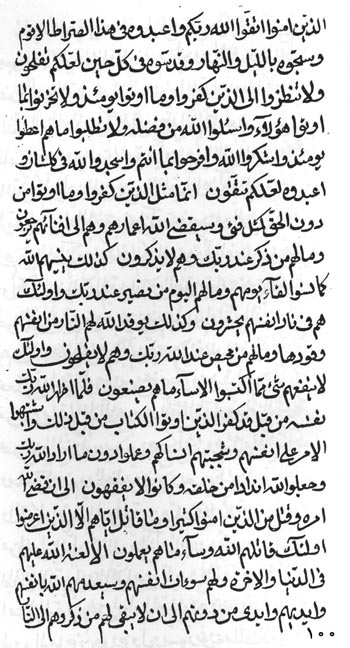 الذين امنوا اتقوا الله ربكم واعبدوه في هذا الصراط الاقوم
وسبحوه بالليل والنهار وقدسوه في كل حين لعلكم تفلحون
ولا تنظروا الى الذين كفروا وما اوتوا يومئذ ولا تحزنوا بما
اوتوا هؤلاء واسئلوا الله من فضله ولا تطلبوا ما هم اعطوا
يومئذ واشكروا الله وافرحوا بما انتم واسجدوا لله في كل شان و
اعبدوه لعلكم تتقون انما مثل الذين كفروا وما اوتوا من
دون الحق كمثل فئ وسيقضي الله اعمارهم وهم الى افنائهم يرجعون
وما لهم من ذكر عند ربك وهم لا يذكرون كذلك ينسيهم الله
كما نسوا لقاء يومهم وما لهم اليوم من نصير عند ربك واولئك
هم في نار انفسهم يحشرون وكذلك يوقد الله لهم النار من انفسهم
وقودها وما لهم من محيص عند الله ربك وهم لا يفلحون واولئك
لا ينفعهم شئ مما اكتسبوا الا ساء ما هم يصنعون فلما اظهر الله ربك
نفسه من قبل قد كفر الذين اوتوا الكتاب من قبل ذلك
الامر على انفسهم وعملوا دون ما اراد الله ربك
وجعلوا لله اندادا من خلقه وكانوا لا يفقهون الى ان قضى الله
امره وقتل من الذين امنوا كثيرا وما قاتل اياهم الا الذين اعرضوا
اولئك قاتلهم الله وساء ما هم يعملون الا لعنة الله عليهم
في الدنيا والاخرة ولهم سوءات انفسهم وسيعذبهم الله بانفسهم
وايديهم وايدي من دونهم الى ان لا يبقى لهم من ذكر وهم الى النار
١٠٠